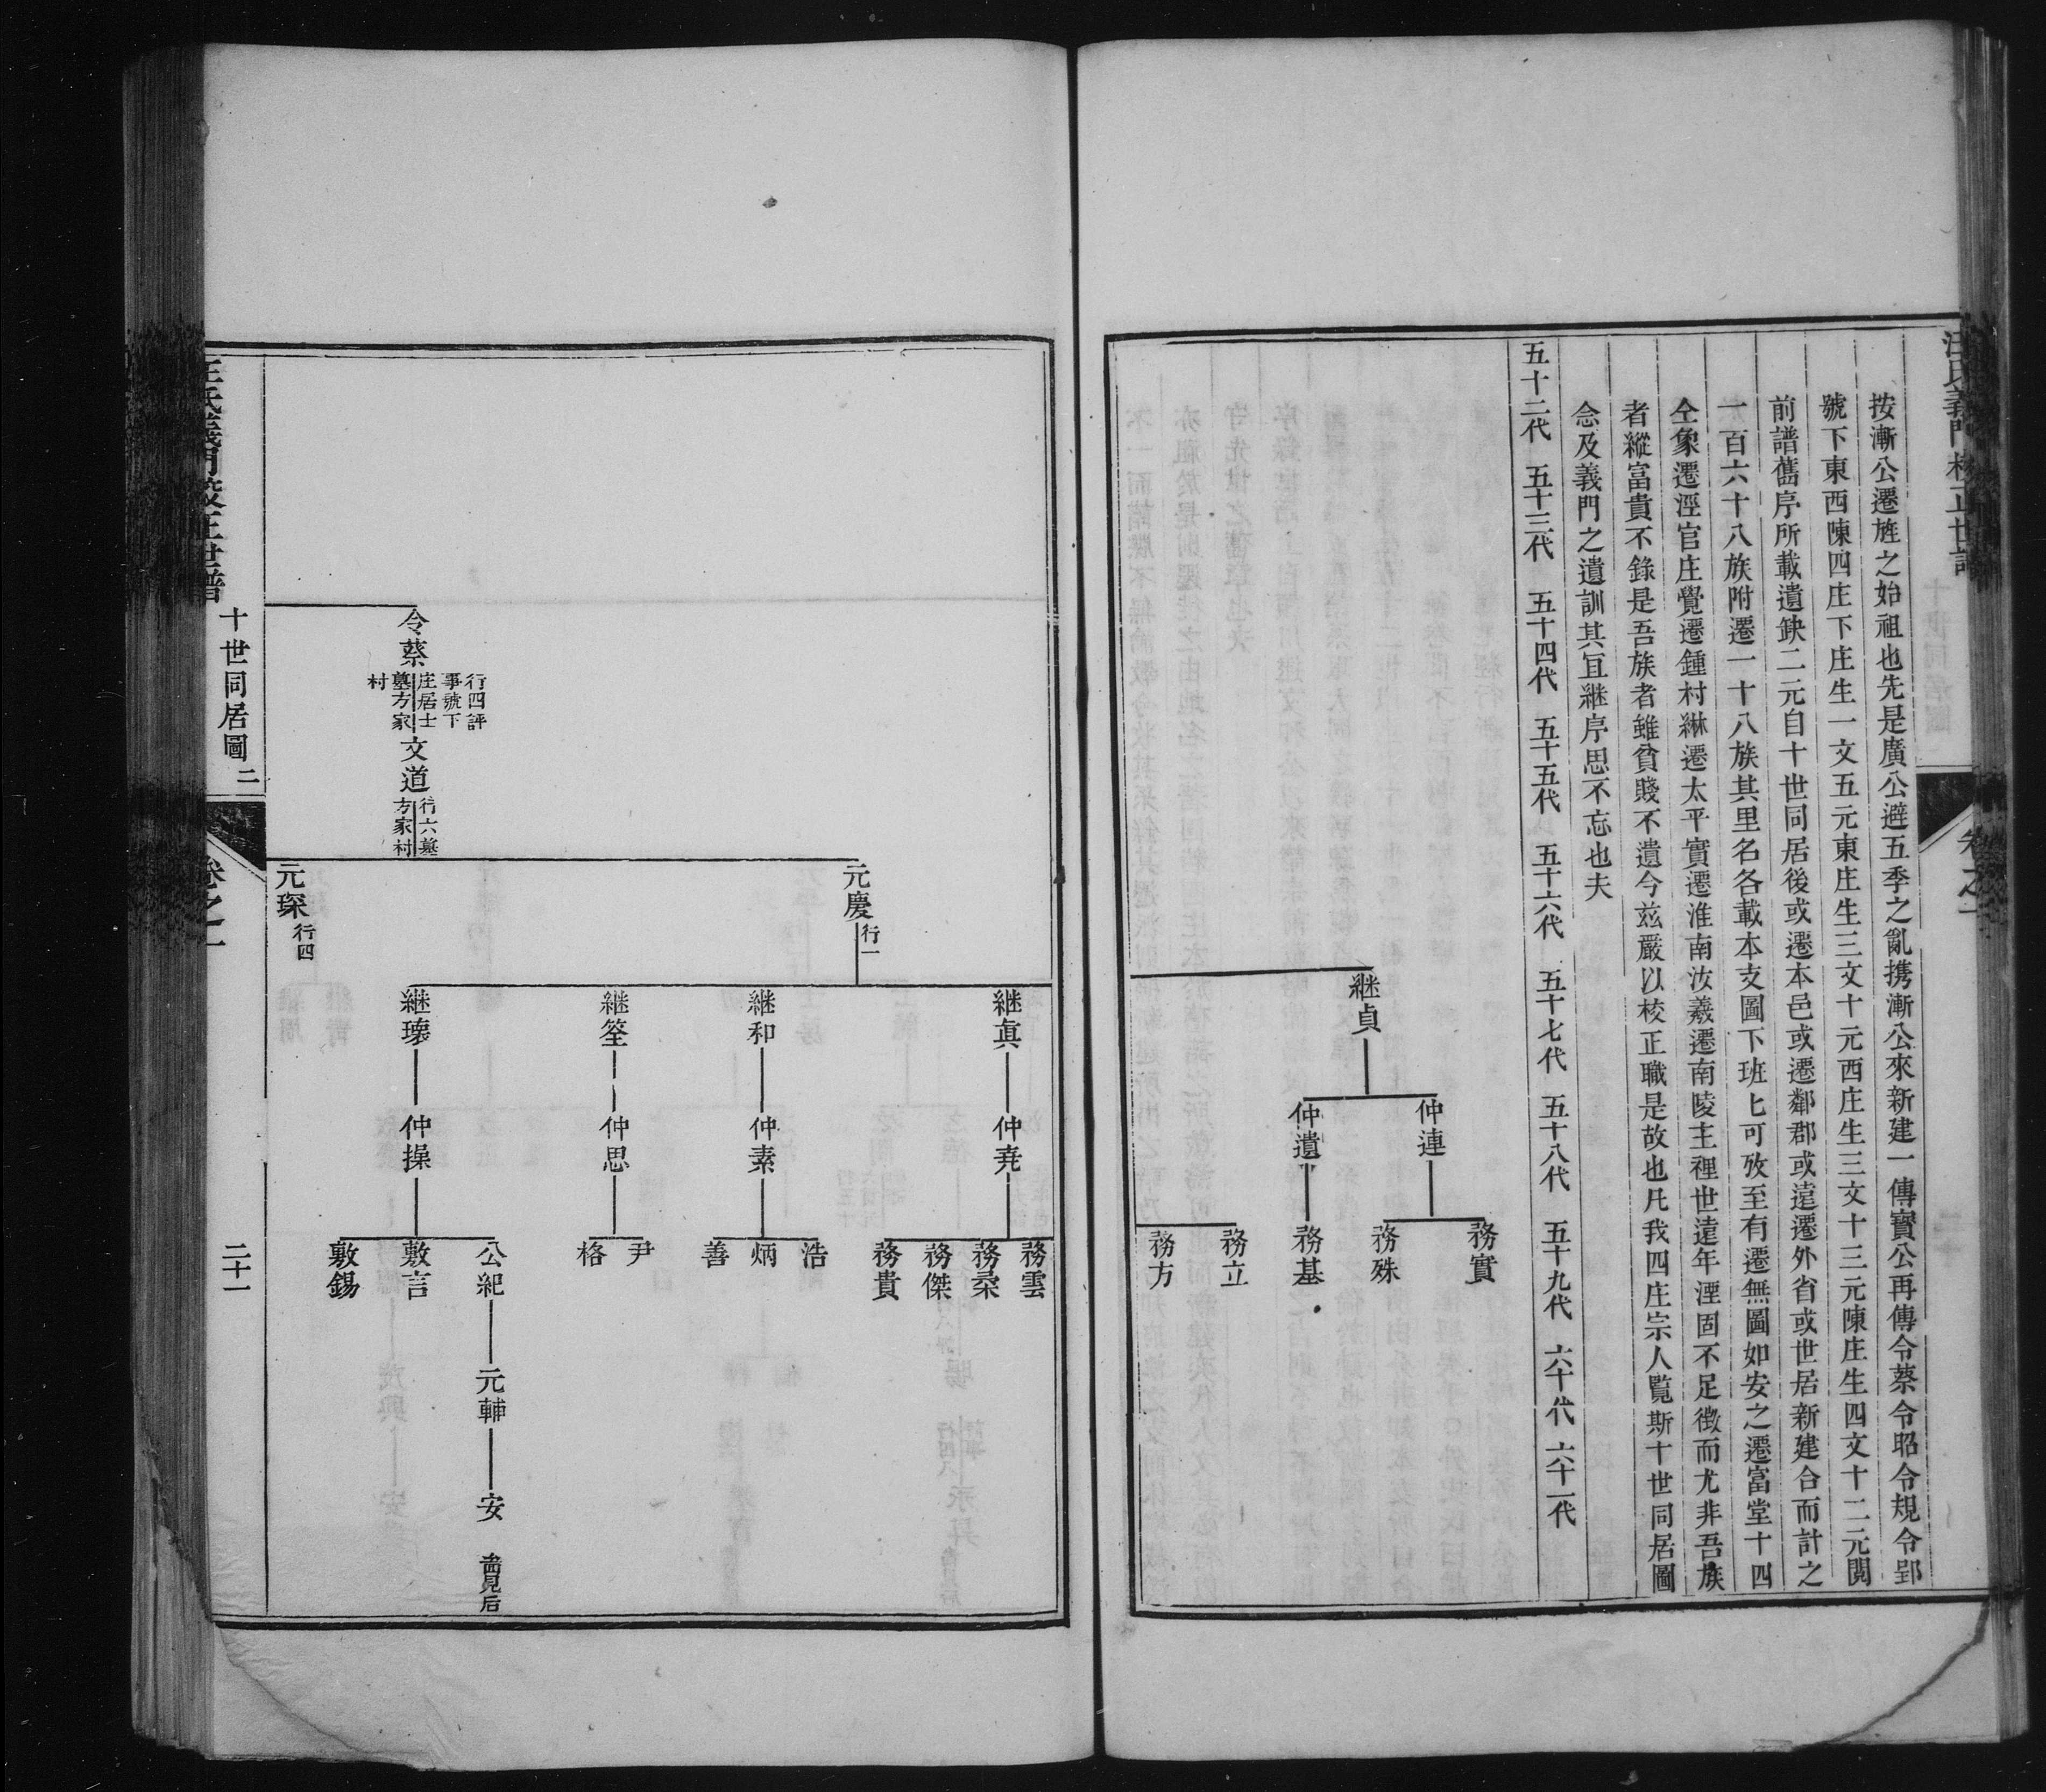 汪氏義門校正世譜
卷之一
按漸公遷旌之始祖也先是廣公避五季之亂携漸公來新建一傳寶公再傳令蔡令昭令規令郢
號下東西陳四庄下庄生一文五元東庄生三文十元西庄生三文十三元陳庄生四文十二元閱
前譜舊序所載遺缺二元自十世同居後或遷本邑或遷鄰郡或遠遷外省或世居新建合而計之
一百六十八族附遷一十八族其里名各載本支圖下班匕可攷至有遷無圖如安之遷富堂十四
仝象遷涇官庄覺遷鍾村綝遷太平實遷淮南汝羲遷南陵主裡世遠年湮固不足徵而尤非吾族
者縱富貴不錄是吾族者雖貧賤不遺今兹嚴以校正職是故也凡我四庄宗人覧斯十世同居圖
念及義門之遺訓其冝継序思不忘也夫
五十二代 五十三代 五十四代 五十五代 五十六代 五十七代 五十八代 五十九代 六十代 六十一代
継貞
仲連
仲遺
務實
務殊
務基
務立
務方
令蔡
行四評
事號下
庄居士
墓方家
村
文道
行六墓
方家村
元慶
行一
元琛
行四
継眞
仲尭
務雲
務桑
務傑
務貴
継和
仲素
浩
炳
善
継筌
仲思
尹
格
継瓌
仲操
公紀
元輔
安
啚見后
敷言
敷錫
汪氏義門校正世譜
十世同居圖
二
卷之一
二十一